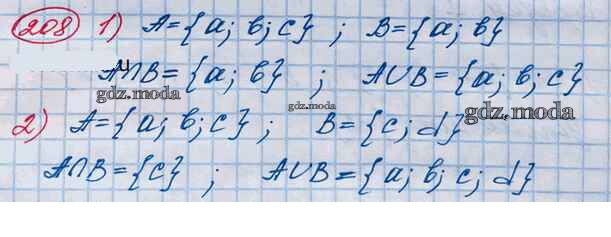 208 1) A={a; b; c} ; B={a; b}
A∩B={a; b} ; A∪B={a; b; c}
gdz.moda gdz.moda gdz.moda
2) A={a; b; c} ; B={c; d}
A∩B={c} ; A∪B={a; b; c; d}